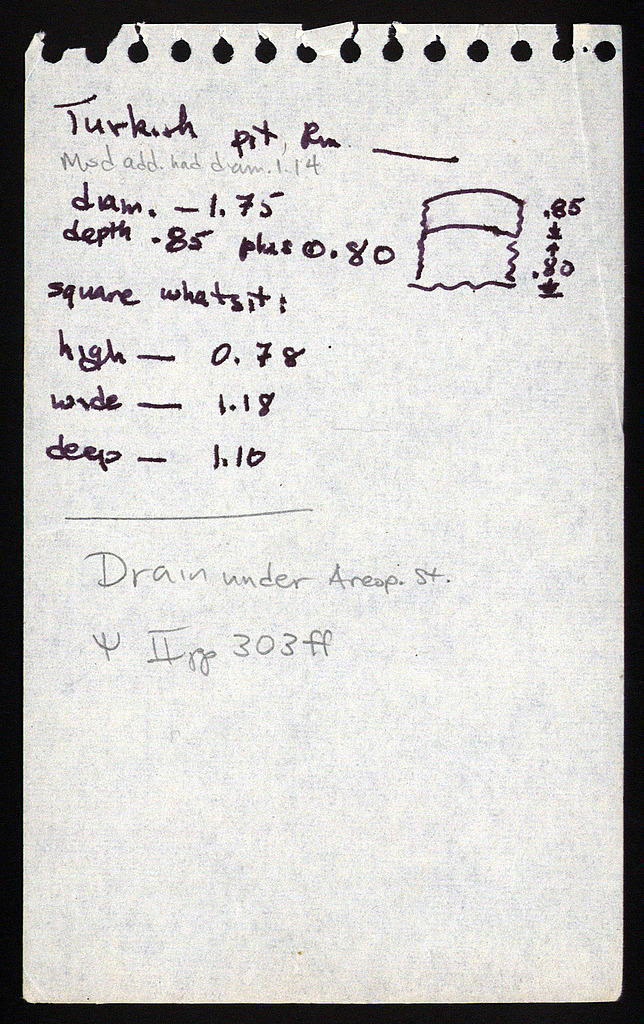 Turkish pit, Rm. ___
Msd add. had diam. 1.14
diam. — 1.75
depth .85 plus 0.80
.85
.80
square whatsit:
high — 0.78
wide — 1.18
deep — 1.10
Drain under Areop. St.
Ψ II pp 303ff